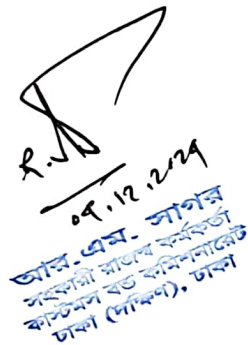 ০৭.১২.২০২১
আর.এম. সাগর
সহকারী রাজস্ব কর্মকর্তা
কাস্টমস বন্ড কমিশনারেট
ঢাকা (দক্ষিণ), ঢাকা